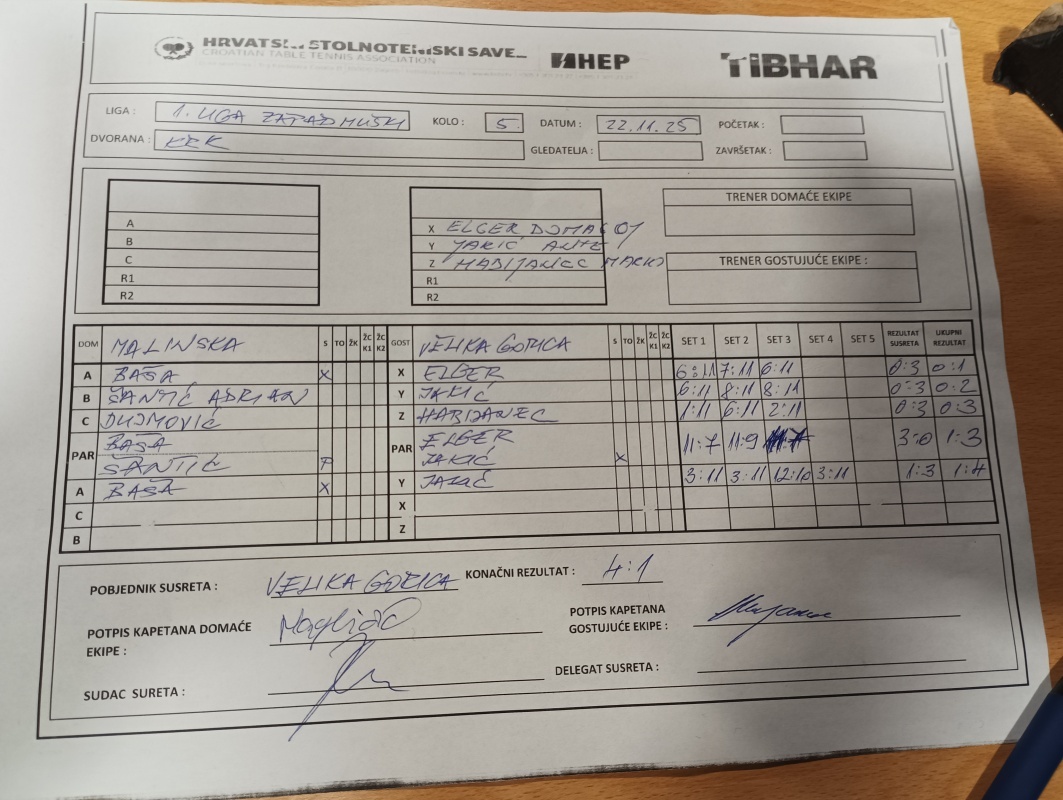 HRVATSKI STOLNOTENISKI SAVEZ
CROATIAN TABLE TENNIS ASSOCIATION
HEP
TIBHAR
LIGA : 1. LIGA ZAPAD MUŠKI KOLO : 5. DATUM : 22.11.25 POČETAK :
DVORANA : KRK GLEDATELJA : ZAVRŠETAK :
TRENER DOMAĆE EKIPE
A X ELGER DOMAGOJ
B Y JAKIĆ ANTE
C Z HABIJANEC MARKO TRENER GOSTUJUĆE EKIPE :
R1 R1
R2 R2
DOM MALINSKA S TO ŽK ŽC K1 ŽC K2 GOST VELIKA GORICA S TO ŽK ŽC K1 ŽC K2 SET 1 SET 2 SET 3 SET 4 SET 5 REZULTAT SUSRETA UKUPNI REZULTAT
A BAŠA X X ELGER 6:11 7:11 6:11 0:3 0:1
B ŠANTIĆ ADRIAN Y JAKIĆ 6:11 8:11 8:11 0:3 0:2
C DUJMOVIĆ Z HABIJANEC 1:11 6:11 2:11 0:3 0:3
PAR BAŠA PAR ELGER 11:7 11:9 3:0 1:3
ŠANTIĆ P JAKIĆ X
A BAŠA X Y JAKIĆ 3:11 3:11 12:10 3:11 1:3 1:4
C X
B Z
POBJEDNIK SUSRETA : VELIKA GORICA KONAČNI REZULTAT : 4:1
POTPIS KAPETANA DOMAĆE EKIPE : POTPIS KAPETANA GOSTUJUĆE EKIPE :
SUDAC SURETA : DELEGAT SUSRETA :